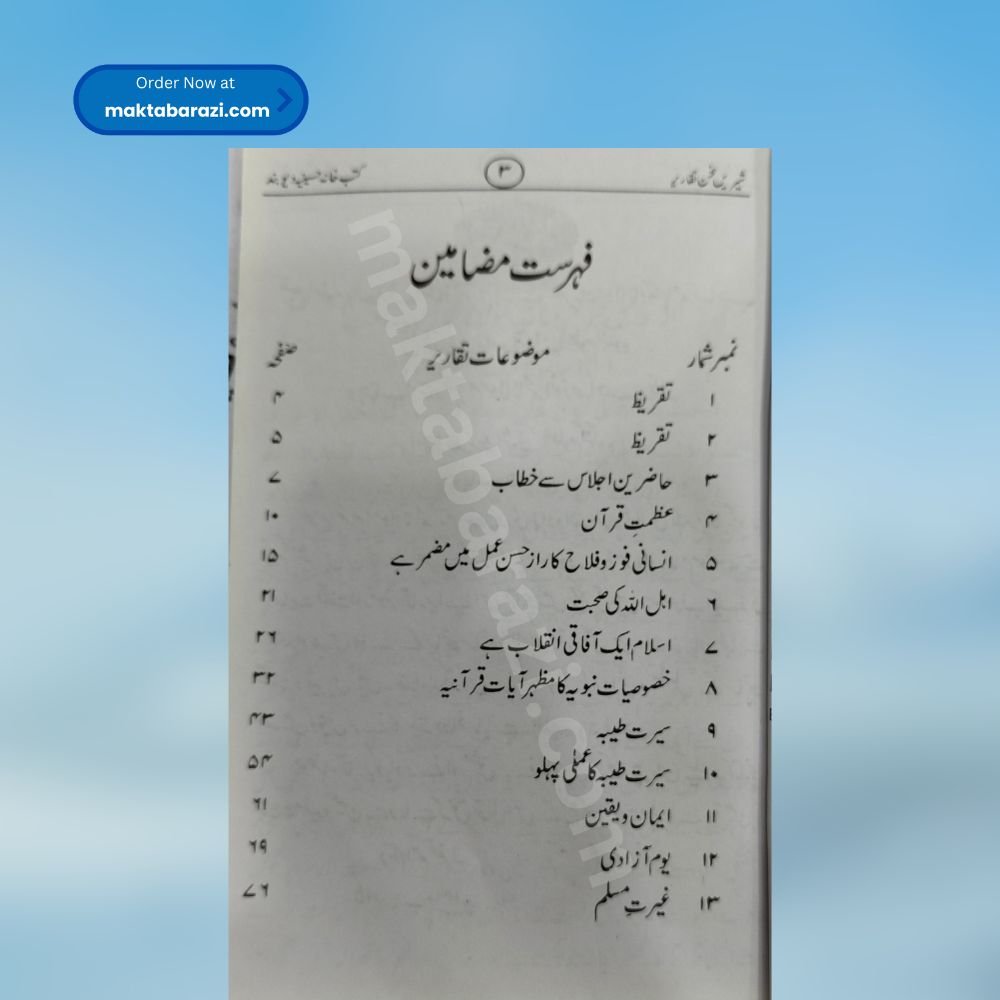 Order Now at
maktabarazi.com
شیریں سخن تقاریر ۳ کتب خانہ حسینیہ دیوبند
فہرست مضامین
نمبر شمار موضوعات تقاریر صفحہ
۱ تقریظ ۴
۲ تقریظ ۵
۳ حاضرین اجلاس سے خطاب ۷
۴ عظمتِ قرآن ۱۰
۵ انسانی فوز و فلاح کا راز حسن عمل میں مضمر ہے ۱۵
۶ اہل اللہ کی صحبت ۲۱
۷ اسلام ایک آفاقی انقلاب ہے ۲۶
۸ خصوصیات نبویہ کا مظہر آیات قرآنیہ ۳۲
۹ سیرت طیبہ ۴۳
۱۰ سیرت طیبہ کا عملی پہلو ۵۴
۱۱ ایمان و یقین ۶۱
۱۲ یوم آزادی ۶۹
۱۳ غیرتِ مسلم ۷۶
maktabarazi.com